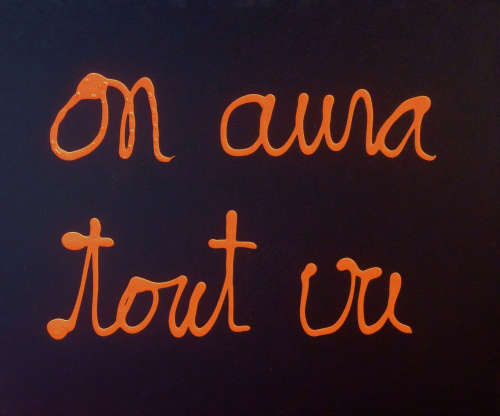 on aura
tout vu